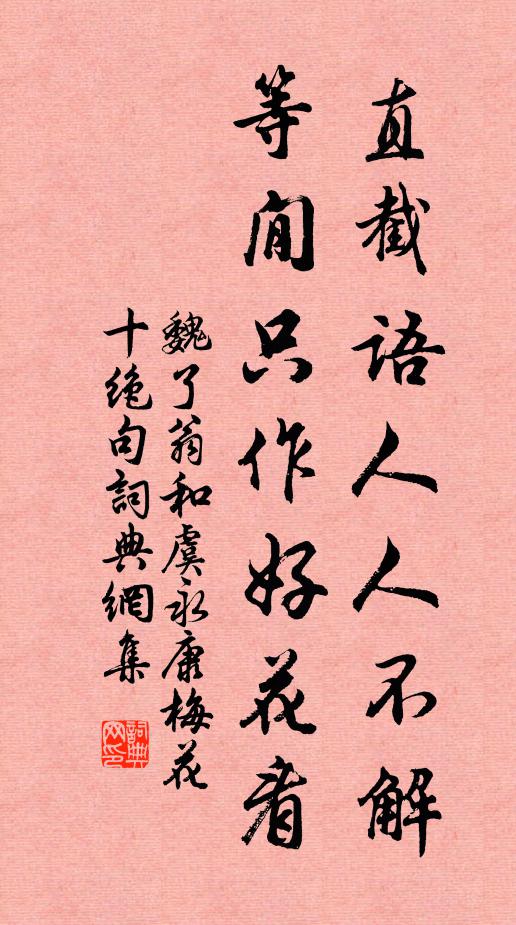 直截語人人不解
等閒只作好花看
魏了翁和虞永康梅花
十絕句詞典網集
詞典
网印